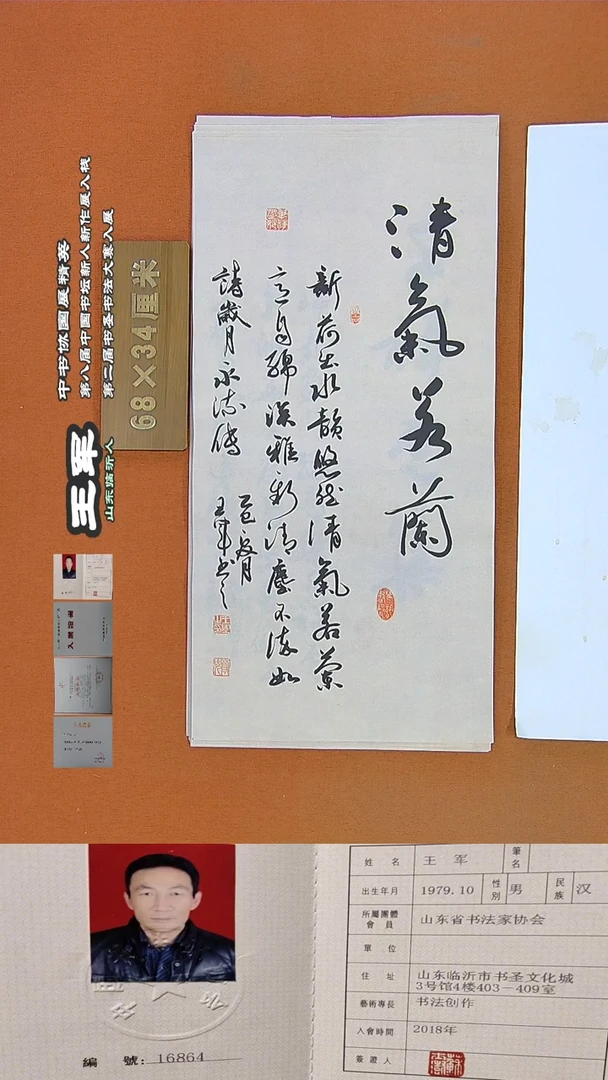 中书协国展精英
第八届中国书坛新人新作展入展
第二届书圣书法大赛入展
王军
山东临沂人
68×34厘米
清氣若蘭
新荷出水韻悠然清氣若蘭
意自綿淡雅清塵不染如
詩歲月永流傳
王軍書
姓名 王军 筆名
出生年月 1979.10 性別 男 民族 汉
所屬團體會員 山东省书法家协会
單位
住址 山东临沂市书圣文化城
3号馆4楼403－409室
藝術專長 书法创作
入會時間 2018年
簽證人
編號: 16864